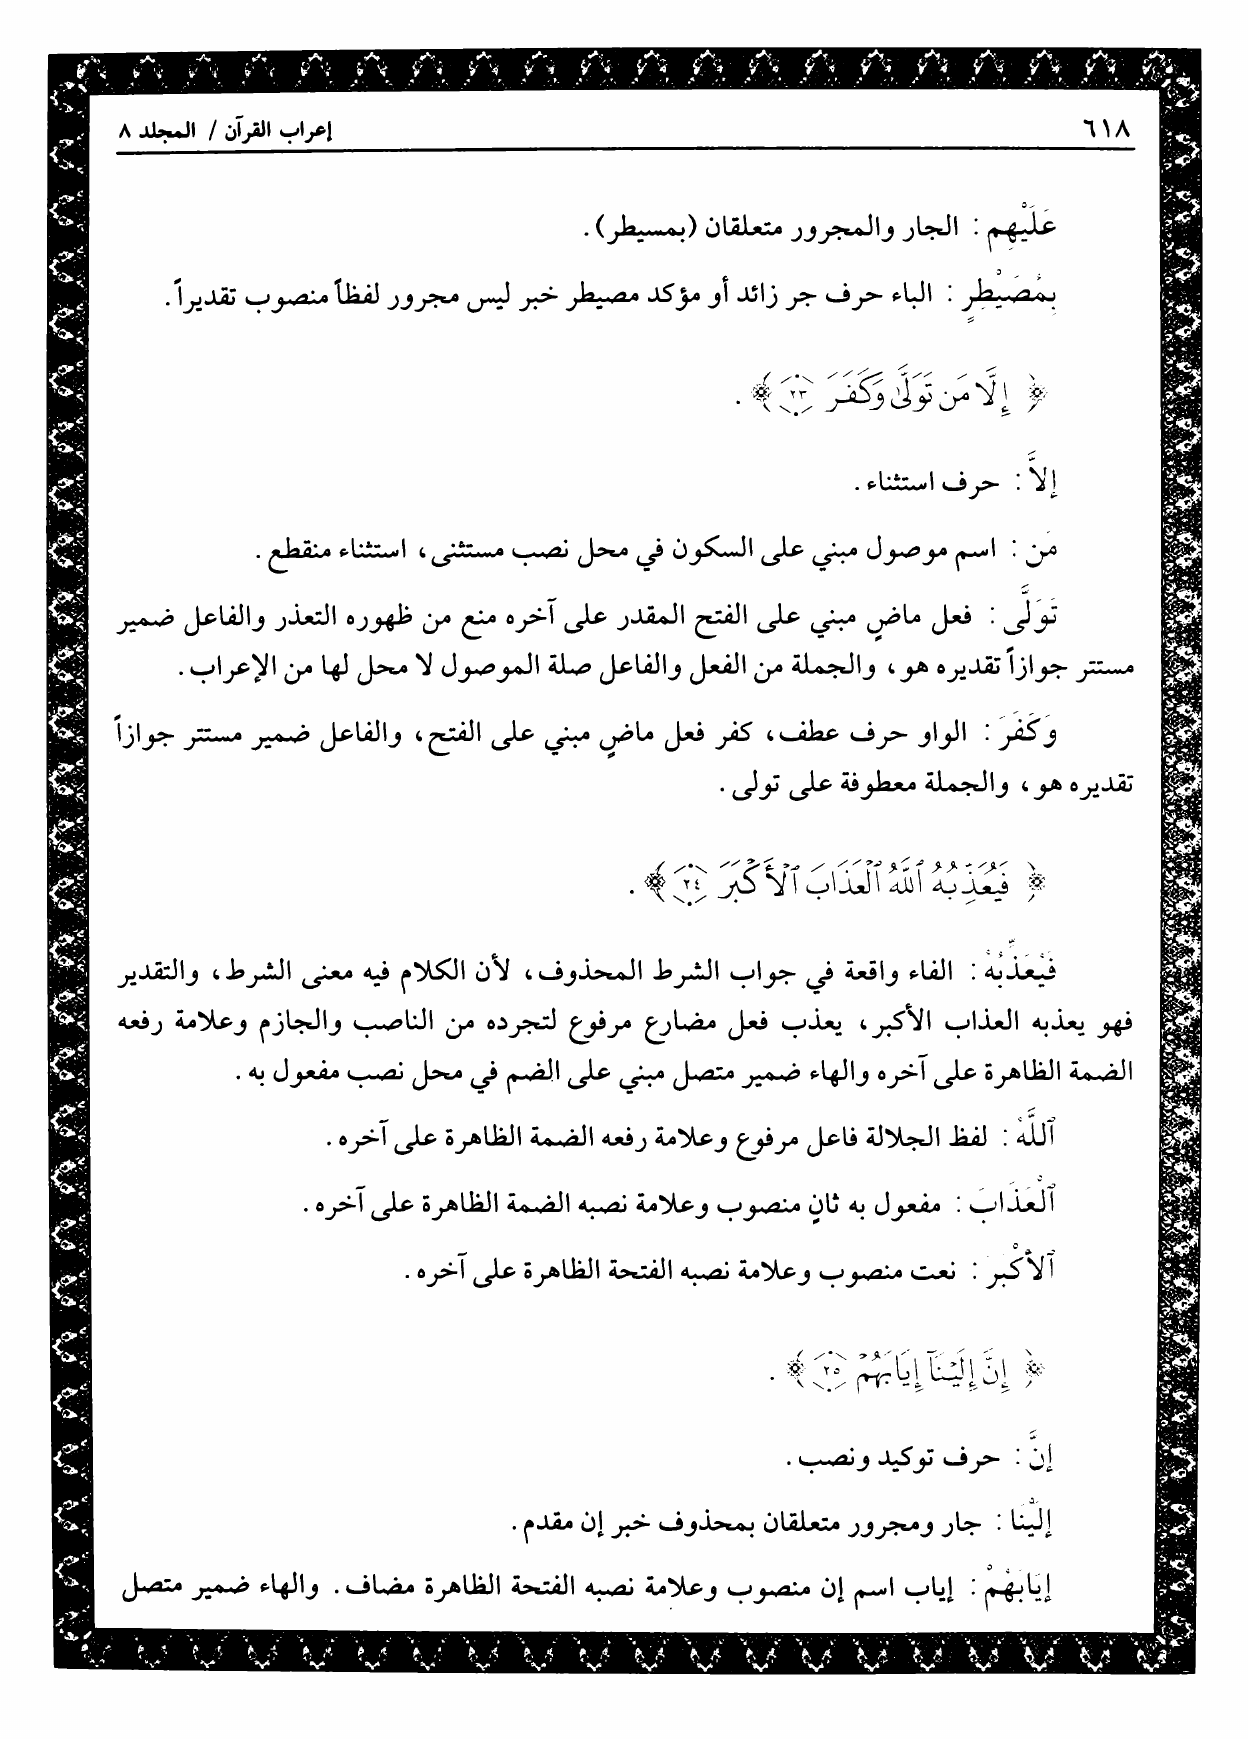 ٦١٨
إعراب القرآن / المجلد ٨
عَلَيْهِم : الجار والمجرور متعلقان (بمسيطر).
بِمُصَيْطِرٍ : الباء حرف جر زائد أو مؤكد مصيطر خبر ليس مجرور لفظاً منصوب تقديراً.
﴿ إِلَّا مَن تَوَلَّىٰ وَكَفَرَ ٢٣ ﴾ .
إلاَّ : حرف استثناء .
مَن : اسم موصول مبني على السكون في محل نصب مستثنى، استثناء منقطع .
تَوَلَّى : فعل ماضٍ مبني على الفتح المقدر على آخره منع من ظهوره التعذر والفاعل ضمير
مستتر جوازاً تقديره هو، والجملة من الفعل والفاعل صلة الموصول لا محل لها من الإعراب .
وَكَفَرَ : الواو حرف عطف، كفر فعل ماضٍ مبني على الفتح، والفاعل ضمير مستتر جوازاً
تقديره هو، والجملة معطوفة على تولى .
﴿ فَيُعَذِّبُهُ ٱللَّهُ ٱلْعَذَابَ ٱلْأَكْبَرَ ٢٤ ﴾ .
فَيُعَذِّبُهُ : الفاء واقعة في جواب الشرط المحذوف، لأن الكلام فيه معنى الشرط، والتقدير
فهو يعذبه العذاب الأكبر، يعذب فعل مضارع مرفوع لتجرده من الناصب والجازم وعلامة رفعه
الضمة الظاهرة على آخره والهاء ضمير متصل مبني على الضم في محل نصب مفعول به .
ٱللَّهُ : لفظ الجلالة فاعل مرفوع وعلامة رفعه الضمة الظاهرة على آخره .
ٱلْعَذَابَ : مفعول به ثانٍ منصوب وعلامة نصبه الضمة الظاهرة على آخره .
ٱلأَكْبَرَ : نعت منصوب وعلامة نصبه الفتحة الظاهرة على آخره .
﴿ إِنَّ إِلَيْنَآ إِيَابَهُمْ ٢٥ ﴾ .
إنَّ : حرف توكيد ونصب .
إلَيْنَا : جار ومجرور متعلقان بمحذوف خبر إن مقدم .
إيَابَهُمْ : إياب اسم إن منصوب وعلامة نصبه الفتحة الظاهرة مضاف . والهاء ضمير متصل